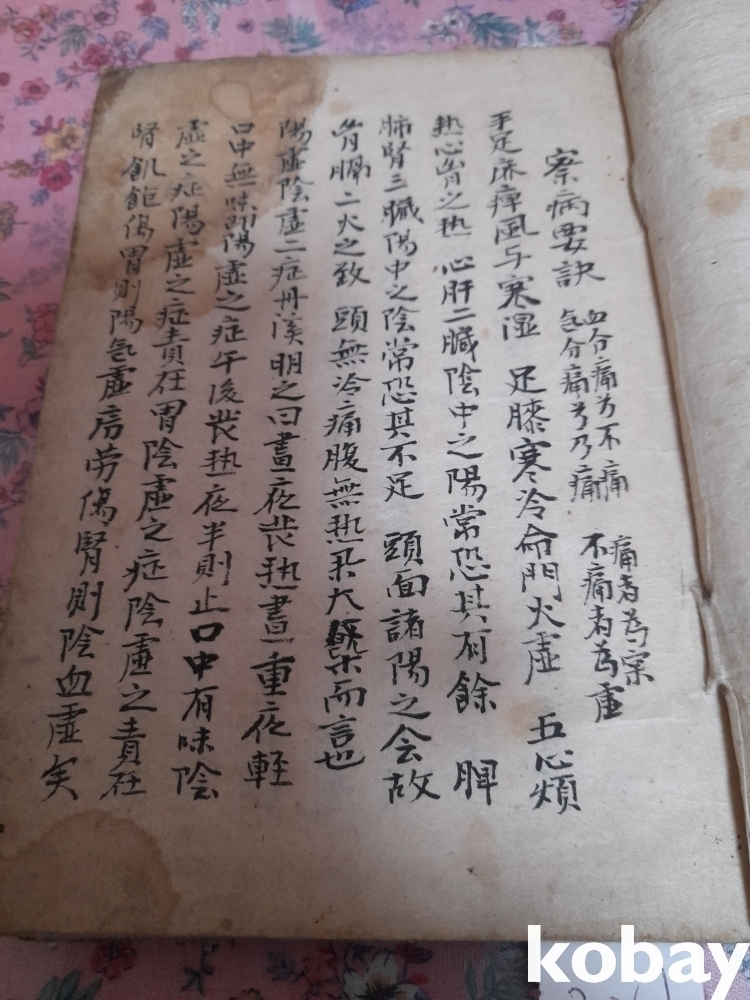 察病要訣
血分痛方不痛
氣分痛方乃痛
痛者為宲
不痛者為虛
手足麻痺風与寒湿 足膝寒冷命門火虛 五心煩
热心胃之热 心肝二臟陰中之陽常恐其有餘 脾
肺腎三臟陽中之陰常恐其不足 頭面諸陽之会故
胃膈二火之致 頭無冷痛腹無热 大槩而言也
陽虛陰虛二症丹溪明之曰晝夜裝热晝重夜輊
口中無味陽虛之症午後裝热夜半則止口中有味陰
虛之症陽虛之症責在胃陰虛之症陰虛之責在
腎飢飽傷胃則陽氣虛房劳傷腎則陰血虛矣
kobay